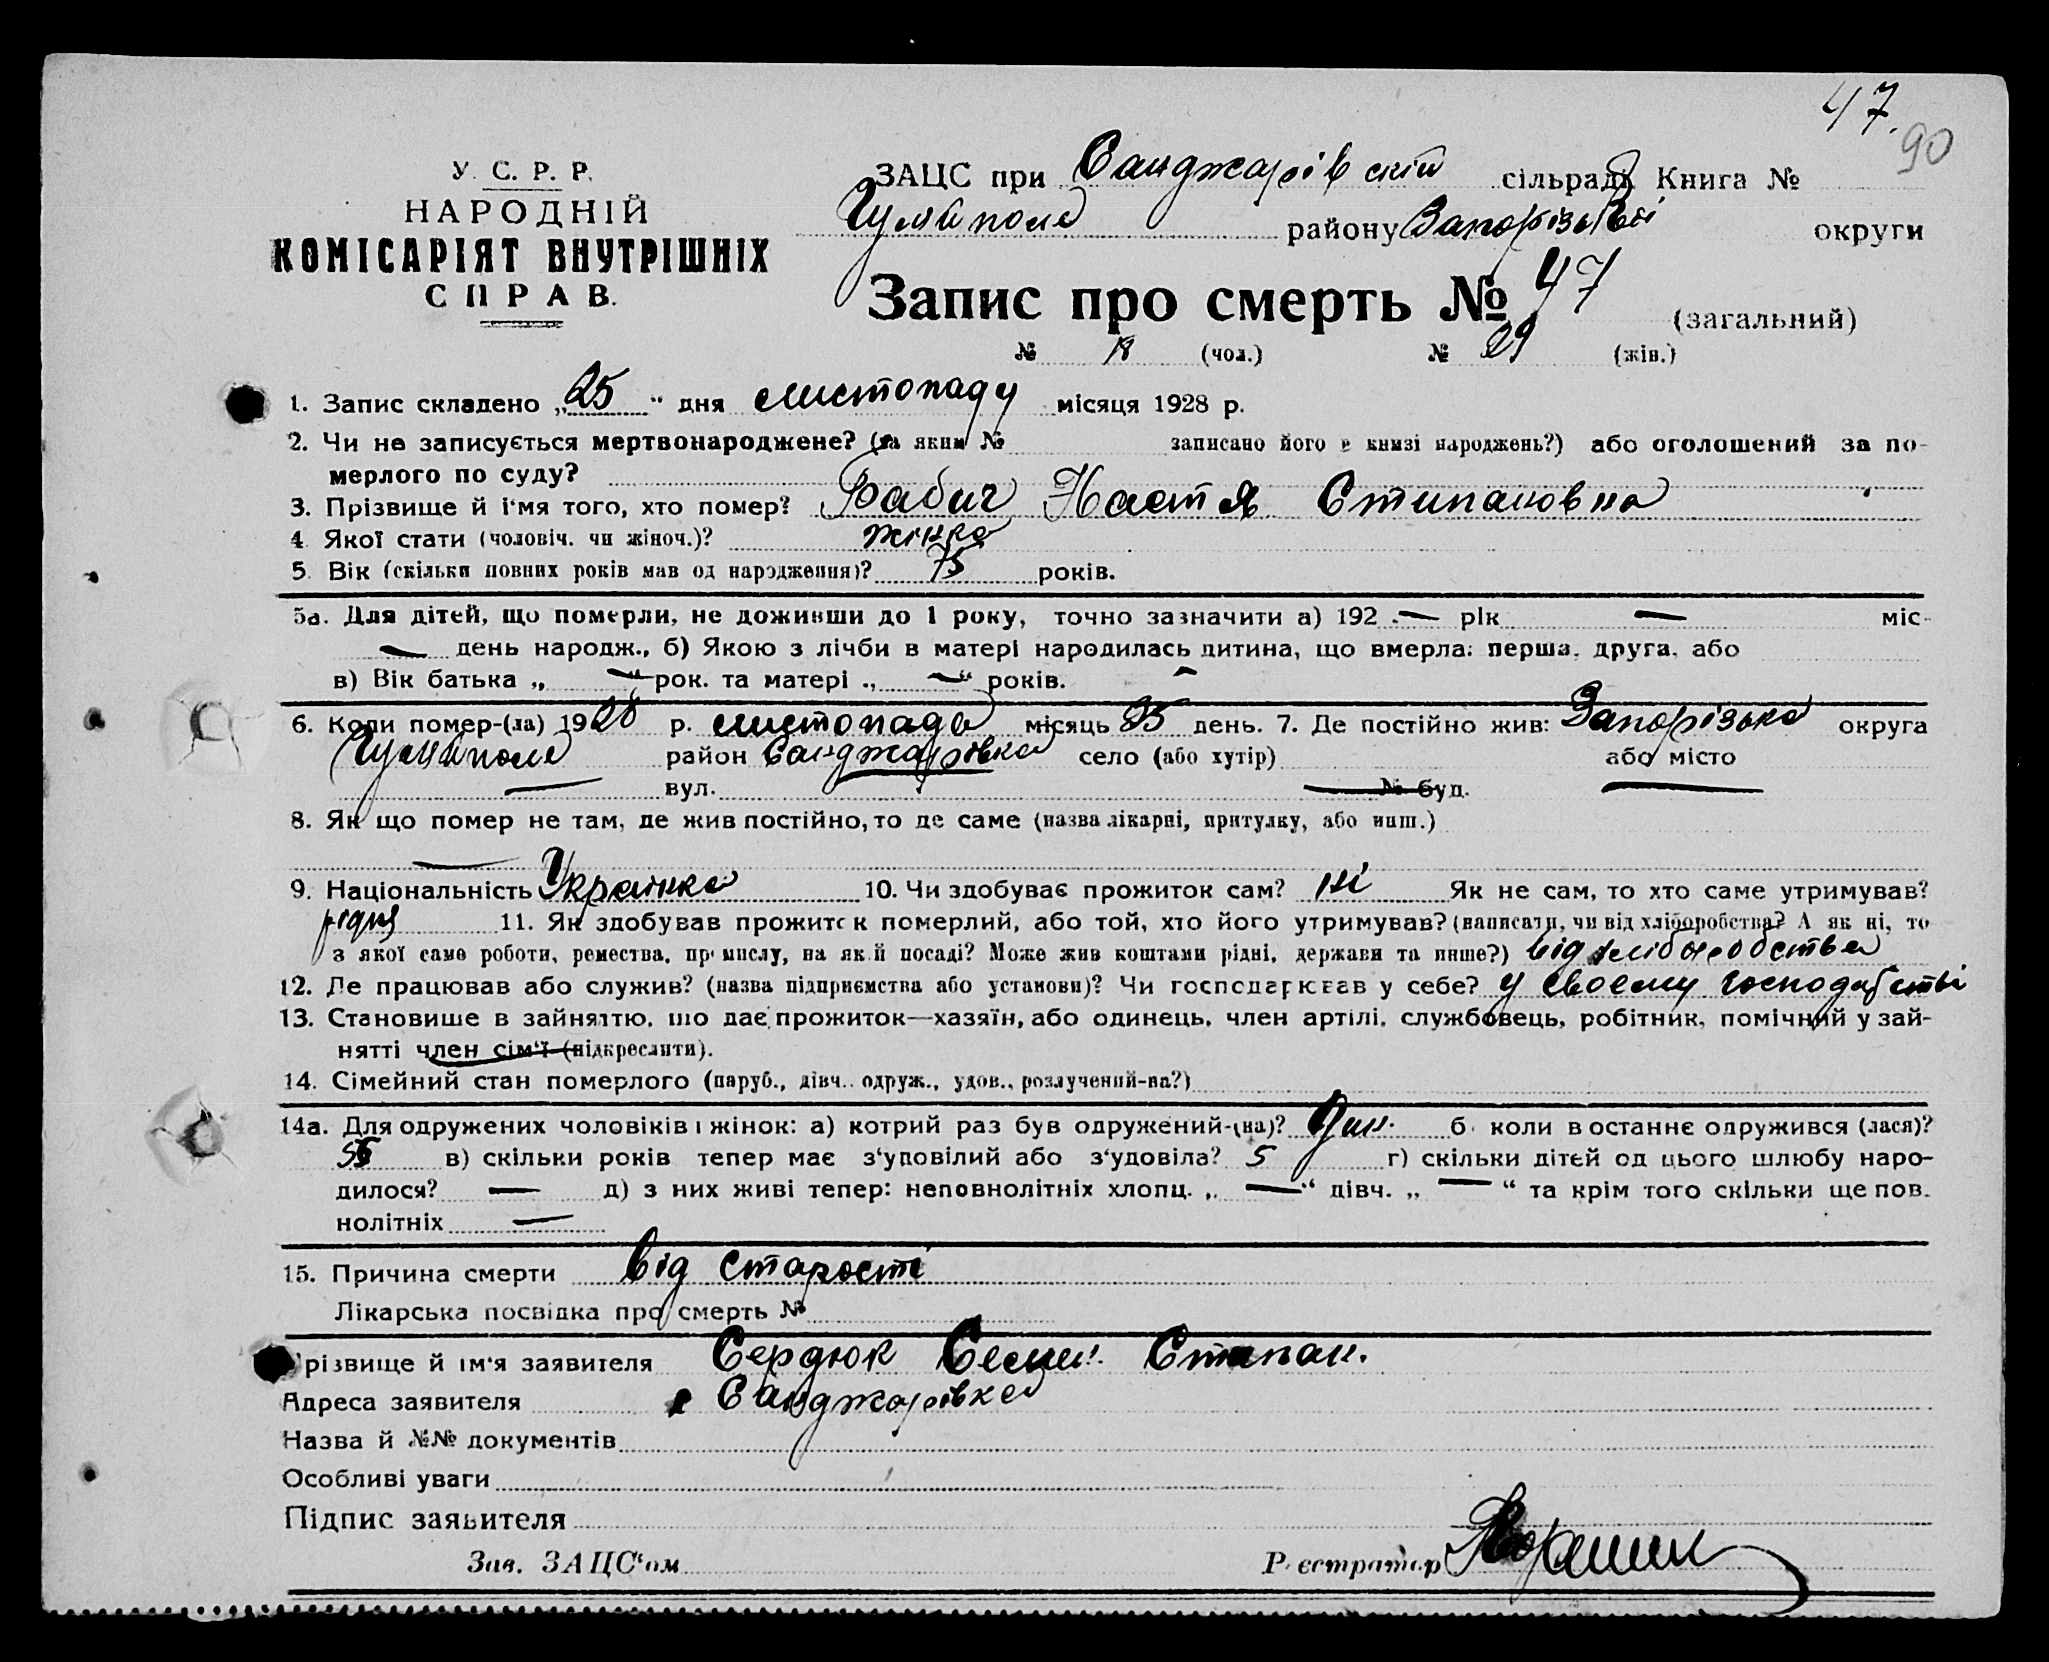 47.
90
У. С. Р. Р.
НАРОДНІЙ
КОМІСАРІЯТ ВНУТРІШНІХ
СПРАВ.
ЗАЦС при Санджарівскій сільраді Книга №
Гуляйполе району Запорізької округи
Запис про смерть № 47 (загальний)
№ 18 (чол.) № 29 (жін.)
1. Запис складено „25" дня листопаду місяця 1928 р.
2. Чи не записується мертвонароджене? (за яким № записано його в книзі народжень?) або оголошений за по-
мерлого по суду?
3. Прізвище й ім'я того, хто помер? Бабич Настя Стипановна
4. Якої стати (чоловіч. чи жіноч.)? жінка
5. Вік (скільки повних років мав од народження)? 75 років.
5а. Для дітей, що померли, не доживши до 1 року, точно зазначити а) 192 — рік — міс-
— день народж., б) Якою з лічби в матері народилась дитина, що вмерла: перша, друга, або
в) Вік батька „ —" рок. та матері „ —" років.
6. Коли помер-(ла) 1928 р. листопада місяць 25 день. 7. Де постійно жив: Запорізька округа
Гуляйполе район Санджарівка село (або хутір) або місто
— вул. — № буд. —
8. Як що помер не там, де жив постійно, то де саме (назва лікарні, притулку, або инш.)
—
9. Національність Українка 10. Чи здобуває прожиток сам? ні Як не сам, то хто саме утримував?
рідня 11. Як здобував прожиток померлий, або той, хто його утримував? (написати, чи від хліборобства? А як ні, то
з якої саме роботи, ремества, промислу, на якій посаді? Може жив коштами рідні, держави та инше?) від хліборобства
12. Де працював або служив? (назва підприємства або установи)? Чи господарював у себе? у своему господарстві
13. Становище в зайняттю, що дає прожиток—хазяїн, або одинець, член артілі, службовець, робітник, помічний у зай-
нятті член сім'ї (підкреслити).
14. Сімейний стан померлого (паруб., дівч., одруж., удов., розлучений-на?)
14а. Для одружених чоловіків і жінок: а) котрий раз був одружений-(на)? б) коли в останнє одружився (лася)?
в) скільки років тепер має з'удовілий або з'удовіла? 5 г) скільки дітей од цього шлюбу наро-
дилося? — д) з них живі тепер: неповнолітніх хлопц. „ —" дівч. „ — " та крім того скільки ще пов-
нолітніх —
15. Причина смерти від старості
Лікарська посвідка про смерть №
Прізвище й ім'я заявителя Сердюк Стипан.
Адреса заявителя с Санджарівка
Назва й №№ документів
Особливі уваги
Підпис заявителя
Зав. ЗАЦС'ом Реєстратор